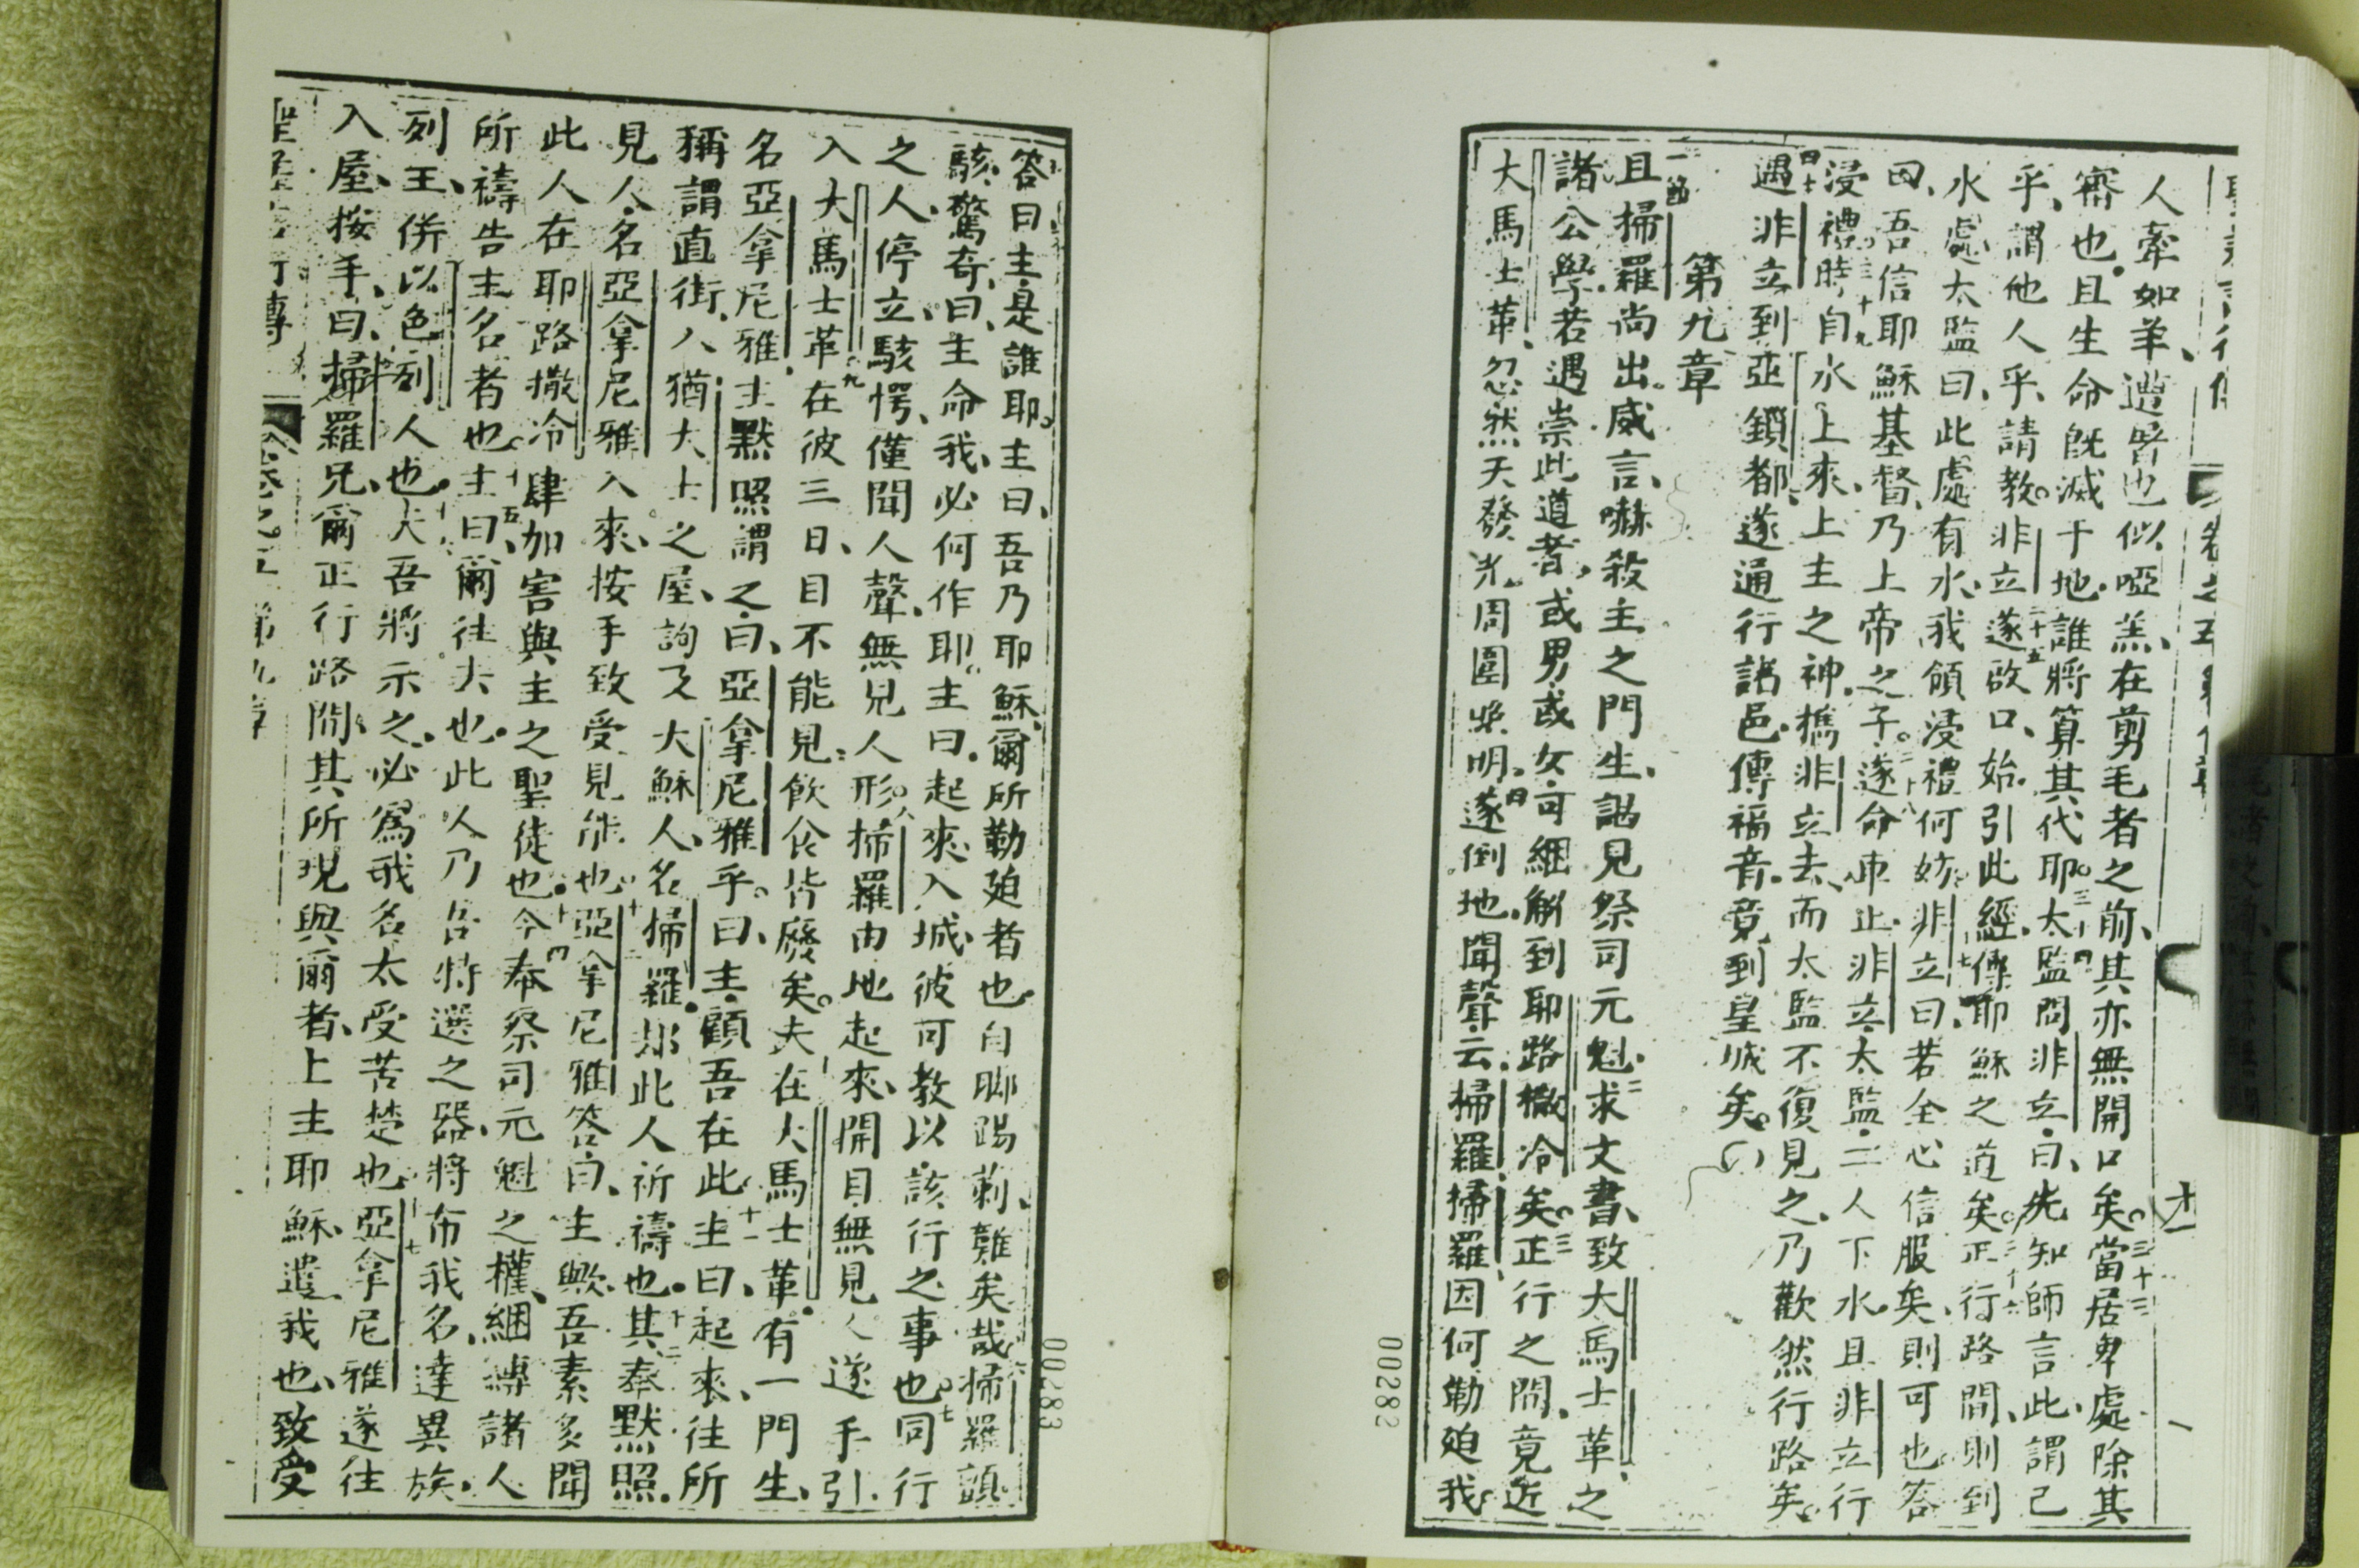 人牽如羊、遭宰也似啞羔、在剪毛者之前、其亦無開口矣。三十三當居卑處除其
審也。且生命旣滅于地、誰將算其代耶。三十四太監問非立、曰、先知師言此、謂己
乎、謂他人乎、請教。三十五非立遂啟口、始引此經、傳耶穌之道矣。三十六正行路間、則到
水處、太監曰、此處有水、我領浸禮何妨。三十七非立曰、若全心信服矣、則可也。答
曰、吾信耶穌基督、乃上帝之子。三十八遂命車止、非立太監、二人下水。且非立行
浸禮。三十九時自水上來、上主之神、攜非立去、而太監不復見之、乃歡然行路矣。
四十遇非立到亞鎖都、遂通行諸邑、傳福音、竟到皇城矣。
第九章
一節且掃羅尚出威言、嚇殺主之門生、謁見祭司元魁、二求文書、致大馬士革、之
諸公學、若遇崇此道者、或男、或女、可綑解到耶路撒冷矣。三正行之間、竟近
大馬士革、忽然天發光、周圍煥明、四遂倒地、聞聲云、掃羅、掃羅、因何勒廹我。
00282
答曰、主是誰耶。主曰、吾乃耶穌、爾所勒廹者也。自脚踢刺、難矣哉。六掃羅顫
駭驚奇、曰、主命我、必何作耶。主曰、起來、入城、彼可教以、該行之事也。七同行
之人、停立駭愕、僅聞人聲、無見人形。八掃羅由地起來、開目、無見人、遂手引
入大馬士革。九在彼三日、目不能見、飲食皆廢矣。十夫在大馬士革、有一門生、
名亞拿尼雅、主默照謂之、曰、亞拿尼雅乎。曰、主、顧吾在此。十一主曰、起來、往所
稱謂直街、入猶大士之屋、詢及大穌人、名掃羅、那此人祈禱也。十二其奉默照、
見人、名亞拿尼雅入來、按手致受見能也。十三亞拿尼雅答、曰、主歟、吾素多聞
此人在耶路撒冷、肆加害與主之聖徒也。十四今奉祭司元魁之權、綑縛諸人
所禱告主名者也。十五主曰、爾往去也。此人乃吾特選之器、將布我名、達異族、
列王、併以色列人也。十六夫吾將示之、必爲我名太受苦楚也。十七亞拿尼雅遂往
入屋、按手、曰、掃羅兄、爾正行路間、其所現與爾者、上主耶穌、遣我也、致受
卷之五 第九章
00283